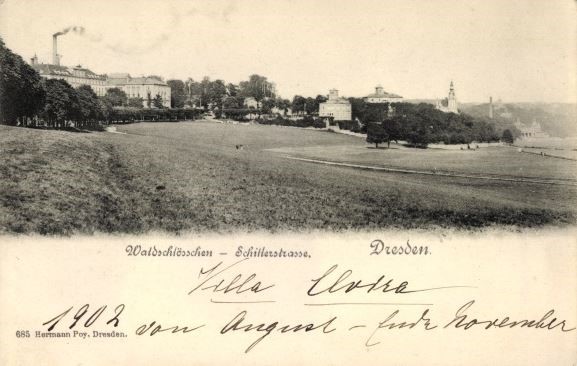 Waldschlösschen – Schillerstrasse.
Dresden.
Villa Elvira
1902 von August – Ende November
685 Hermann Poy, Dresden.